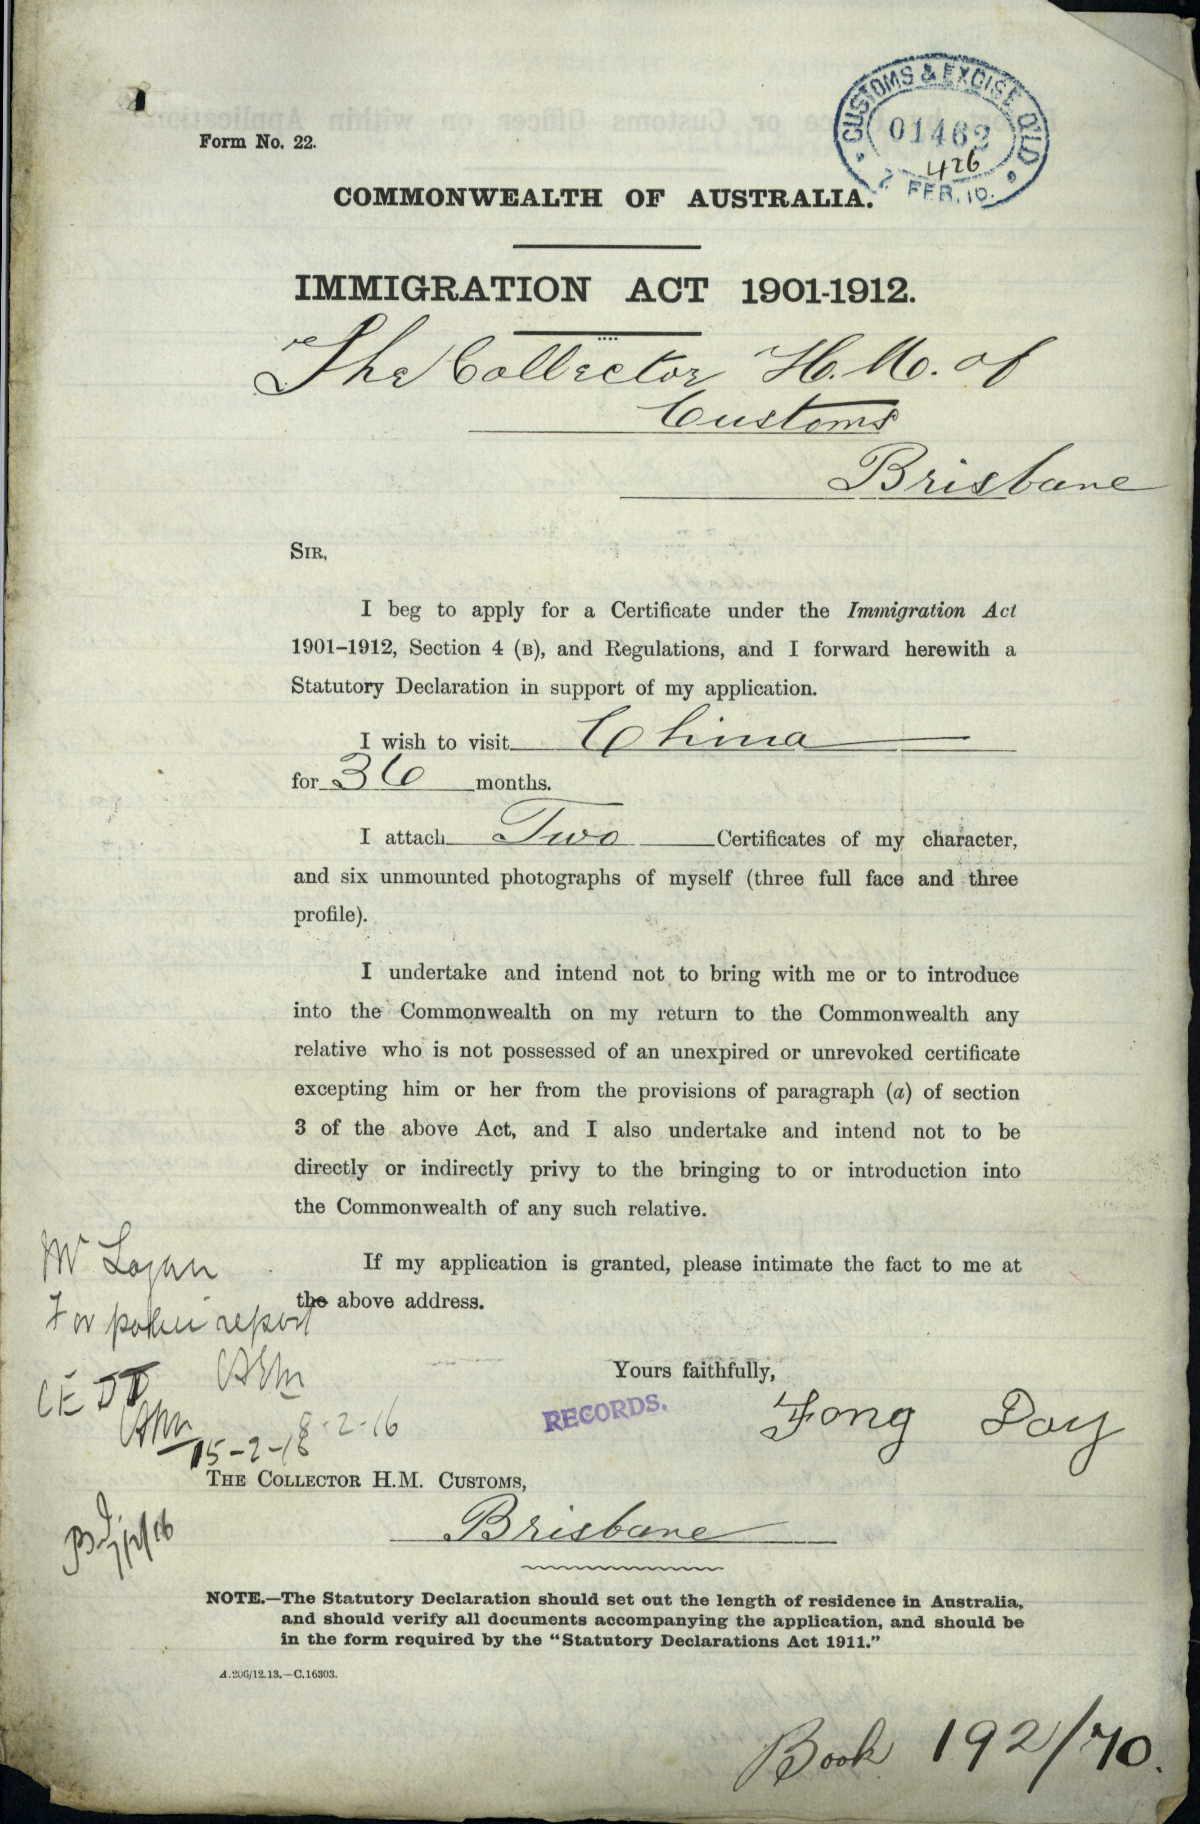 Form No. 22.
CUSTOMS & EXCISE Q'LD
01462
426
7 FEB. 16.
COMMONWEALTH OF AUSTRALIA.
IMMIGRATION ACT 1901-1912.
The Collector H.M. of
Customs
Brisbane
SIR,
I beg to apply for a Certificate under the Immigration Act
1901–1912, Section 4 (B), and Regulations, and I forward herewith a
Statutory Declaration in support of my application.
I wish to visit China
for 36 months.
I attach Two Certificates of my character,
and six unmounted photographs of myself (three full face and three
profile).
I undertake and intend not to bring with me or to introduce
into the Commonwealth on my return to the Commonwealth any
relative who is not possessed of an unexpired or unrevoked certificate
excepting him or her from the provisions of paragraph (a) of section
3 of the above Act, and I also undertake and intend not to be
directly or indirectly privy to the bringing to or introduction into
the Commonwealth of any such relative.
If my application is granted, please intimate the fact to me at
the above address.
Mr Logan
For police report
8-2-16
CEDT
15-2-16
Yours faithfully,
RECORDS.
Fong Day
THE COLLECTOR H.M. CUSTOMS,
Brisbane
7/2/16
NOTE.—The Statutory Declaration should set out the length of residence in Australia,
and should verify all documents accompanying the application, and should be
in the form required by the "Statutory Declarations Act 1911."
A.206/12.13.—C.16303.
Book 192/70.